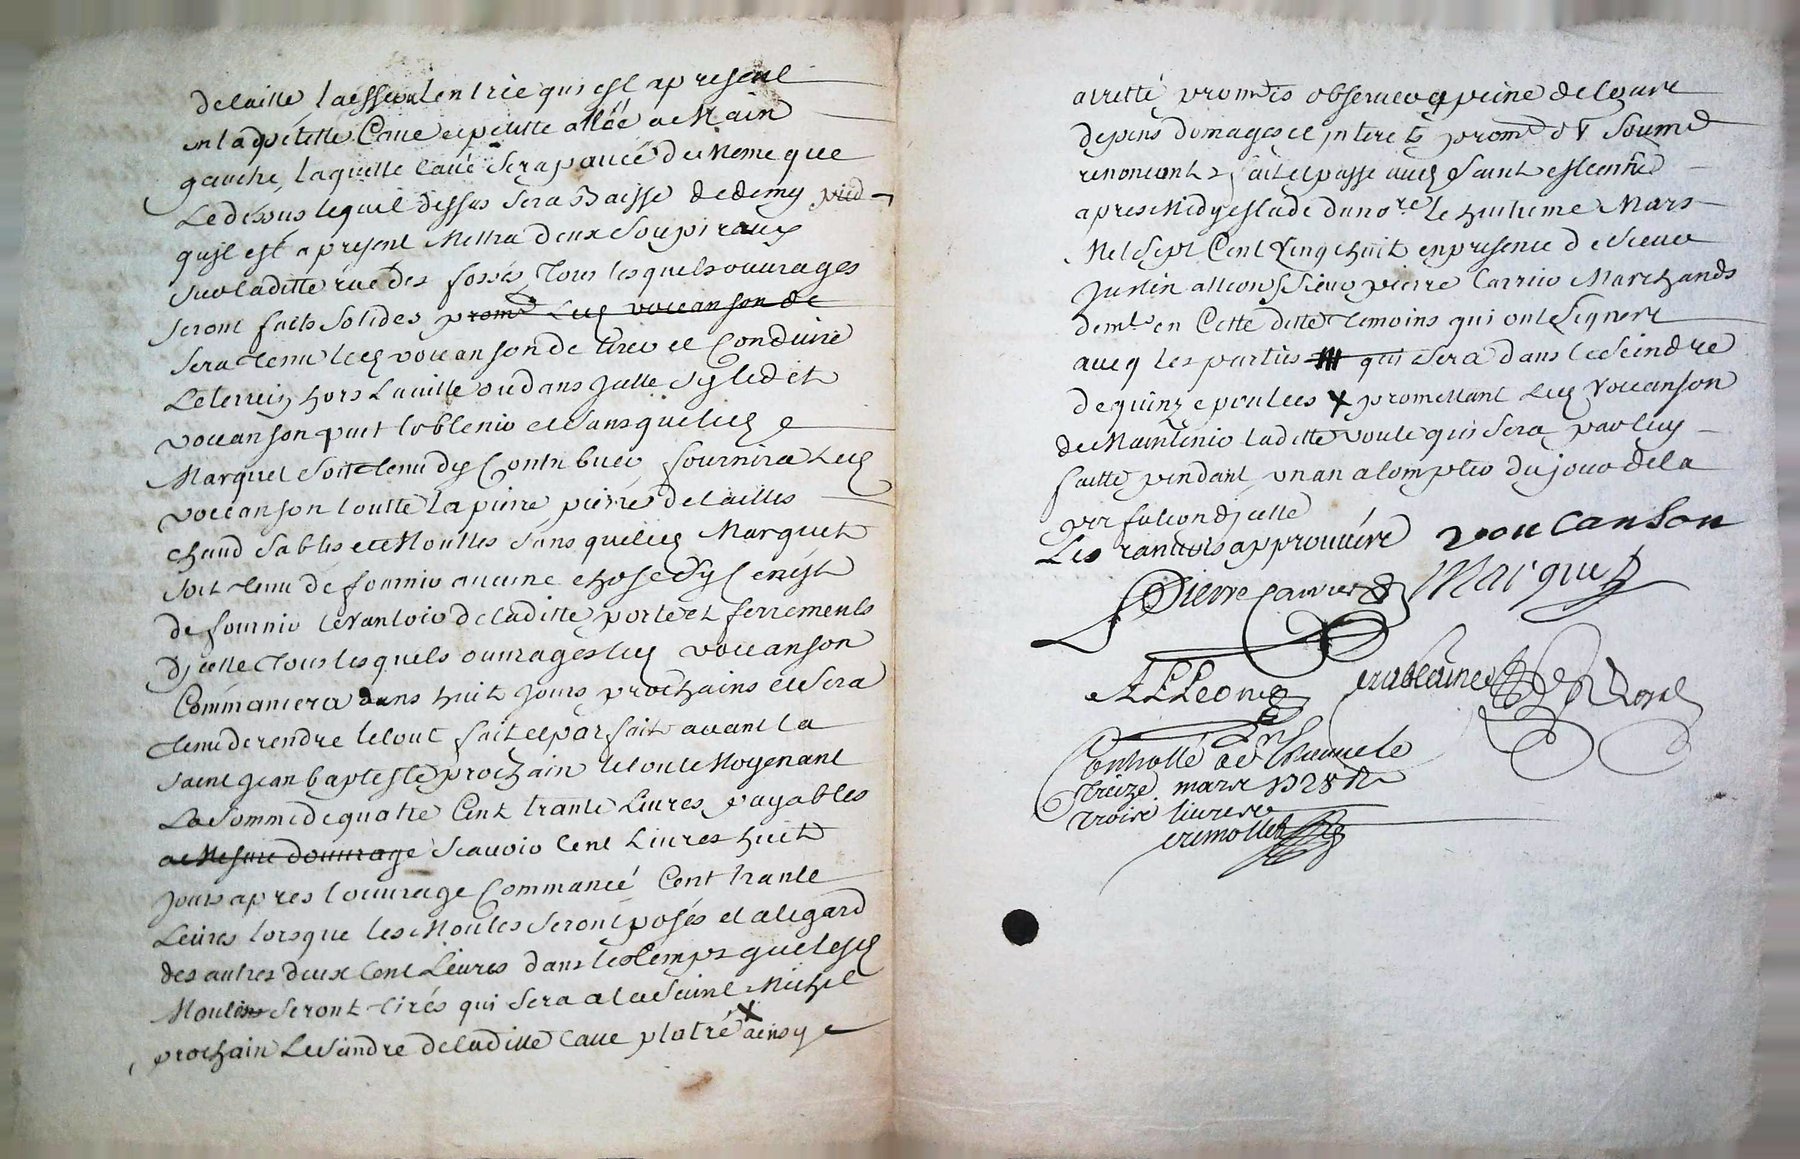 detaille laessera lentrée qui est apresent
en la ditte Cave et petitte allée a Main
gauche, laquelle Cave sera pavée de Meme que
Le dessus lequel dessus sera Baisse de demy pied
quil est apresent Mettra deux Soupiraux
sur laditte rüe des fossés, Tous lesquels ouvrages
seront faits solides prom^t Led voucanson de
sera Tenu led voucanson de tirer et Conduire
Le terrein hors La ville ou dans Jcelle sy led
voucanson peut lobtenir et sans que led
Marquet soit tenu dy Contribuer, fournira Led
voucanson toutte la pierre pierre de tailles
chaud sables et Moulles sans que led Marquet
soit tenu de fournir aucune chose Sy Ce nest
de fournir le vantoir de laditte porte et ferrements
dJcelle Tous lesquels ouvrages led voucanson
Commancera dans huit Jours prochains et sera
Tenu de rendre le tout fait et parfait avant la
saint Jean baptiste prochain le tout Moyenant
La Somme de quatre Cent trante Livres payables
a Mesure d'ouvrage scavoir Cent Livres huit
Jours apres l'ouvrage Commancé Cent trante
Livres lorsque les Moules seront posés et a legard
des autres deux Cent Livres dans les temps que lesd
Moules seront tirés qui sera a la Saint Michel
prochain Le Seindre de laditte Cave platré x ainsy
arretté promis observer a peine de tous
depens domages et jnterets prom^t et Soumis
renoncant &c fait et passé aud Saint estienne
apres Midy estude du no^re le huitieme Mars
Mel Sept Cent Vingt huit en presence de Sieur
Justin alleon, Sieur pierre Carrier Marchands
dem^t en Cette ditte Temoins qui ont Signere
avec les parties qui sera dans le Seindre
de quinze poulces x promettant Led voucanson
de Maintenir laditte voute qui Sera par luy
faitte pendant un an a compter du jour de la
perfation dJcelle
Les ranvois approuvere voucanson
Pierre Carrier Marquet
ALLeon
Controllé a S^t Etienne le
treize mars 1728 R
trois livres